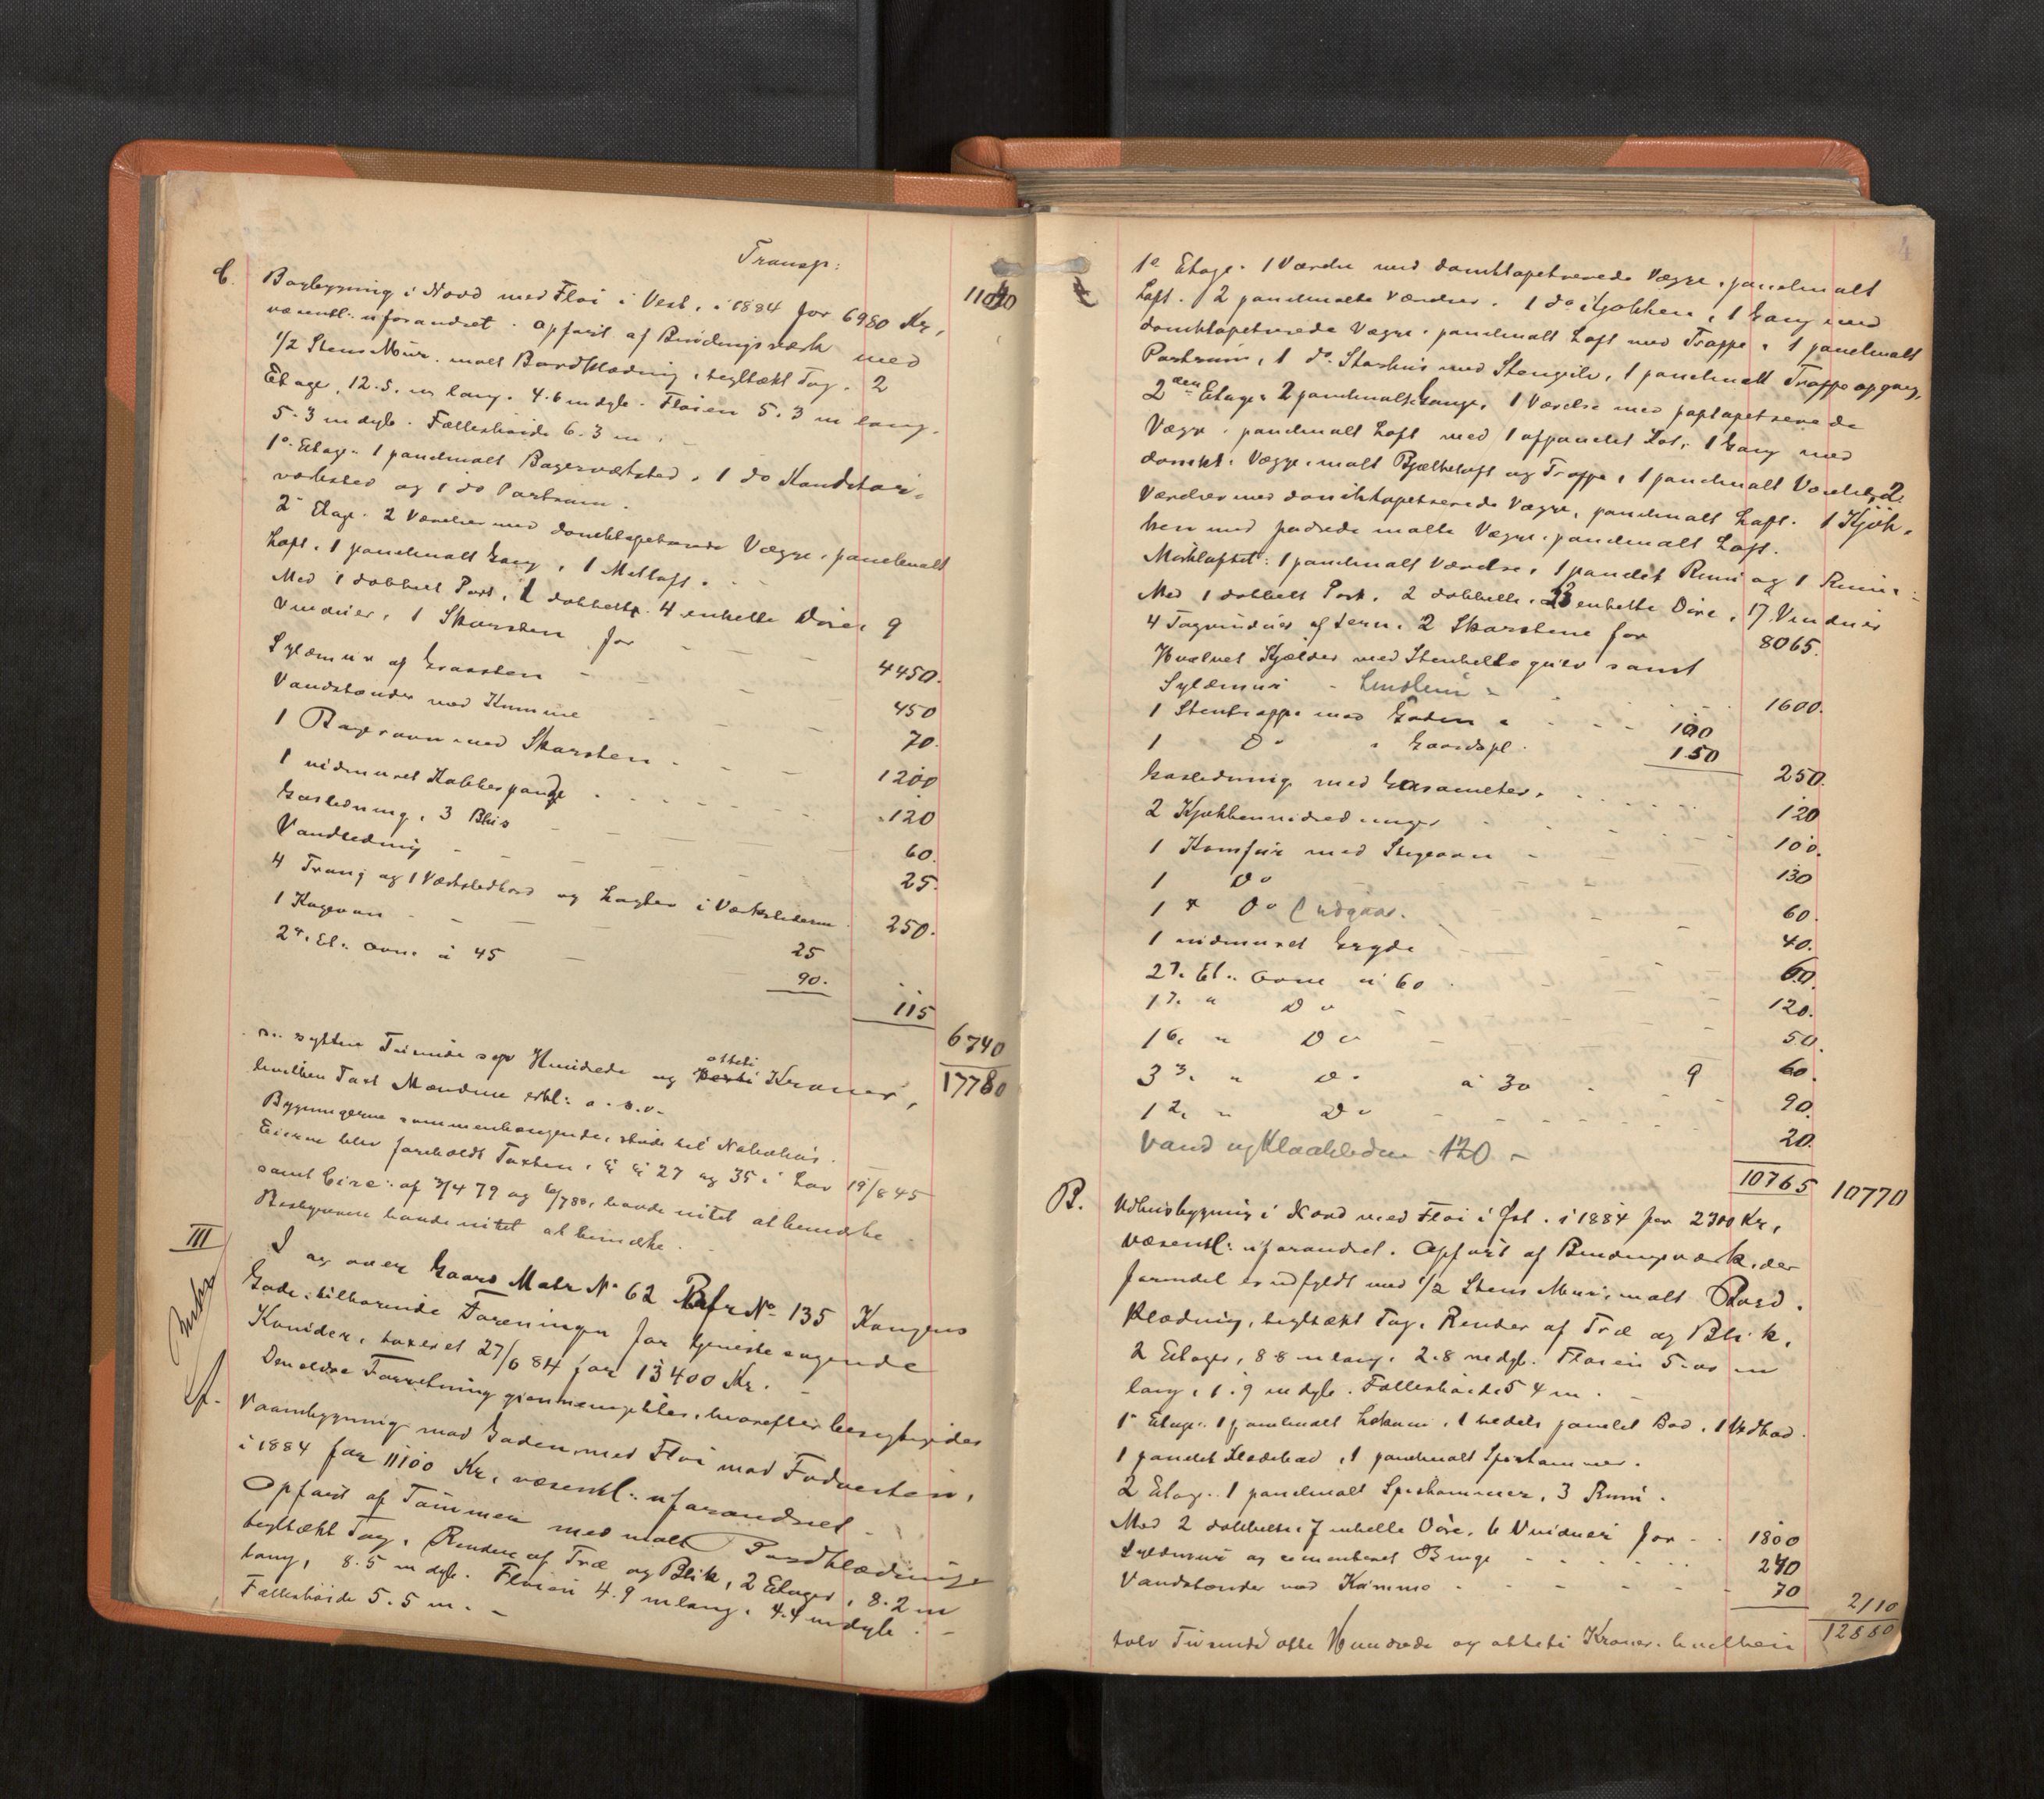 Transp: 11040
C. Bagbygning i Nord med Fløi i Vest, i 1884 for 6980 Kr,
væsentl: uforandret. Opført af Bindingsværk med
1/2 Stens Muur. malt Bordklædning, teglhækt Tag. 2
Etager, 12.5. m lang. 4.6 m dyb. Fløien 5.3 m lang.
5.3 m dyb. Fælleshøide 6.3 m. –
1e. Etage. 1 panelmalt Bagerværksted, 1 do Konditori-
værksted og 1 do Portrum.
2e Etage. 2 Værelser med domktapetserede Vægge, panelmalt
Loft, 1 panelmalt Gang, 1 Melloft.
Med 1 dobbelt Port, 1 dobbelt. 4 enkelte Döre, 9
Vinduer, 1 Skorsten for 4450.
Sylemur af Graasten 450
Vandtønder med Kumme 70.
1 Bagerovn med Skorsten 1200
1 indmuret Kobberpande 120
Gasledning, 3 Blus 60.
Vandledning 25
4 Traug og 1 Værkstedbord og Laagher i Værkstederne 250.
1 Kageovn 25
2 4. El: Ovne à 45 90.
115
6740
sytten Tusinde syv Hundrede og otteti Kroner, 17780
hvilken Taxt Mændene erkl: o.s.v.
Bygningerne sammenhængende, støde til Nabohus.
Eieren blev foreholdt Taxten, §§ 27 og 35 i Lov 19/8 45
samt Circ: af 3/4 79 og 6/7 88, havde intet at bemærke
Bestyreren havde intet at bemærke.
III
I og over Gaard Matr No 62 Brfr No 135 Kongens
Gade, tilhørende Foreningen for tjenestesøgende
Kvinder, taxeret 27/6 84 for 13400 Kr. –
Den ældre Forretning gjennemgikkes, hvorefter besigtigedes
A. Vaaningbygning mod Gaden, med Fløi mod Fodvesten,
i 1884 for 11100 Kr, væsentl: uforandret.
Opført af Tømmer med malt Bordklædning
teglhækt Tag, Render af Træ og Blik, 2 Etager, 8.2 m
lang, 8.5 m dyb. Fløien 4.9 m lang. 4.4 m dyb. –
Fælleshøide 5.5 m. –
4
1e Etage. 1 Værelse med domktapetserede Vægge, panelmalt
Loft. 2 panelmalte Værelser. 1 do Kjøkken, 1 Gang med
domktapetserede Vægge, panelmalt Loft med Trappe, 1 panelmalt
Portrum, 1 do. med Stengulv, 1 panelmalt Trappeopgang,
2den Etage. 2 panelmalt Gange, 1 Værelse med paptapetserede
Vægge, panelmalt Loft med 1 afpanelet Kot, 1 Gang med
domkt: Vægge, malt Bjælkeloft og Trappe, 1 panelmalt Værelse, 2
Værelser med domktapetserede Vægge, panelmalt Loft. 1 Kjøk-
ken med pudsede malte Vægge, panelmalt Loft.
Mørkloftet: 1 panelmalt Værelse, 1 panelet Rum og 1 Rum. –
Med 1 dobbelt Port, 2 dobbelte, 23 enkelte Döre, 17 Vinduer
4 Tagvinduer af Jern, 2 Skorstene for 8065.
Hvælvet Kjælder med Stenhellegulv samt
Sylemur 1600.
1 Stentrappe mod Gaden 100
1 Do " Gaardspl. 150
250.
Gasledning med Gasometer. 120
2 Kjøkkenindredninger 100.
1 Komfur med Stegeovn 130
1 Do 60.
1 + Do (udgaar. 40.
1 indmuret Gryde 60.
2 7. El: Ovne à 60 120.
1 7. " Do 50.
1 6. " Do 60.
3 3. " Do à 30 9 90.
1 2. " Do 20.
Vand og Kloakleden 120 –
10765 10770
B. Udhusbygning i Nord med Fløi i Øst. i 1884 for 2300 Kr,
væsentl: uforandret. Opført af Bindingsværk, der
forendel er udfyldt med 1/2 Stens Mur, malt Bord-
klædning, teglhækt Tag, Render af Træ og Blik,
2 Etager, 8.8 m lang, 2.8 m dyb. Fløien 5.05 m
lang, 1.9 m dyb. Fælleshøide 5 4 m. –
1e Etage: 1 panelmalt Lokum, 1 tildels panelet Bod, 1 Vedbod.
1 panelet, 1 panelmalt Spiskammer.
2 Etage: 1 panelmalt Spiskammer, 3 Rum.
Med 2 dobbelte, 7 enkelte Döre, 6 Vinduer for 1800
Sylemur og cementeret Binge 240
Vandtønder med Kumme 70
2110
tolv Tusinde otte Hundrede og otteti Kroner, hvilken 12880